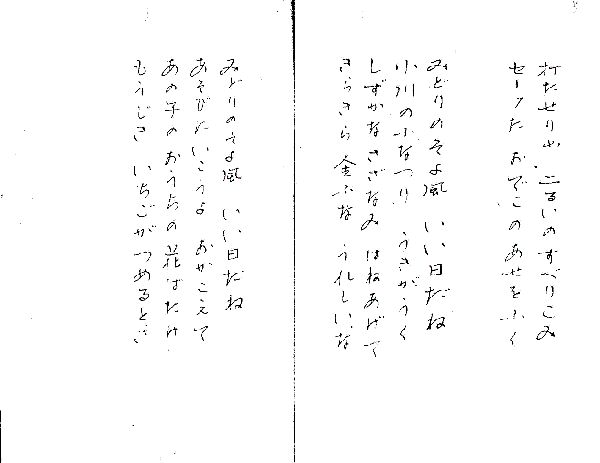 打たせりゃ 二るいのすべりこみ
セーフだ おでこのあせをふく
みどりのそよ風 いい日だね
小川のふなつり うきがうく
しずかなさざなみ はねあげて
きらきら 金ぶな うれしいな
みどりのそよ風 いい日だね
あそびにいこうよ おかこえて
あの子のおうちの花ばたけ
もうじき いちごがつめるとき